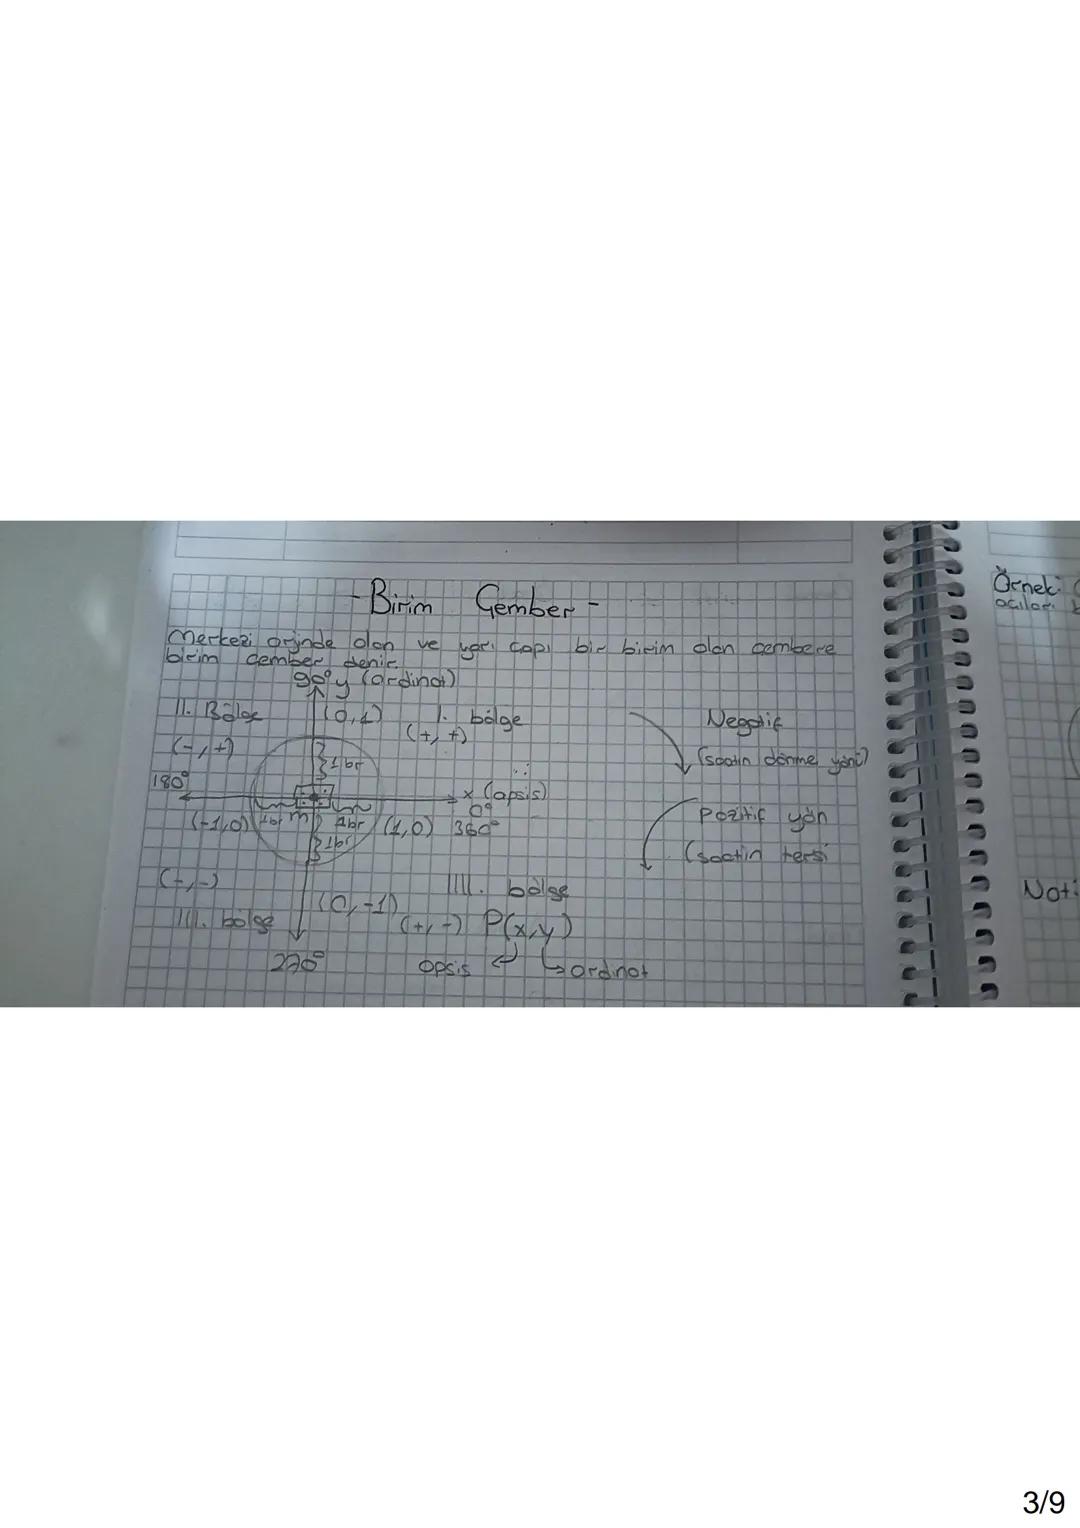 - Birim Çember -
Merkezi orjinde olan ve yarı çapı bir birim olan çembere
birim çember denir.
90° y (ordinat)
II. Bölge (0,1) I. bölge
(-,+) (+,+)
1br
180° x (apsis)
0°
(-1,0) 1br m 1br (1,0) 360°
1br
(-,-) IIII. bölge
III. bölge (0,-1) (+,-) P(x,y)
270° apsis ordinat
Negatif
(saatin dönme yönü)
Pozitif yön
(saatin tersi
Örnek:
açıları
Not:
3/9